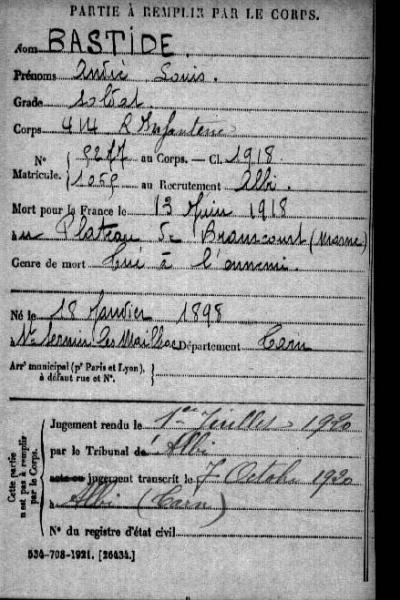 PARTIE À REMPLIR PAR LE CORPS.
Nom BASTIDE
Prénoms André Louis.
Grade Soldat.
Corps 414 R Infanterie
N° Matricule. { au Corps. — Cl. 1918
1059 au Recrutement Albi.
Mort pour la France le 13 Juin 1918
au Plateau de (Marne)
Genre de mort Tué à l'ennemi.
Né le 18 Janvier 1898
à St Sernin les Mailhoc Département Tarn
Arrt municipal (pr Paris et Lyon), à défaut rue et N°. {
Cette partie n'est pas à remplir par le Corps.
Jugement rendu le 1er Juillet 1920
par le Tribunal de Albi
acte ou jugement transcrit le 7 Octobre 1920
à Albi (Tarn)
N° du registre d'état civil
534-708-1921. [26434.]